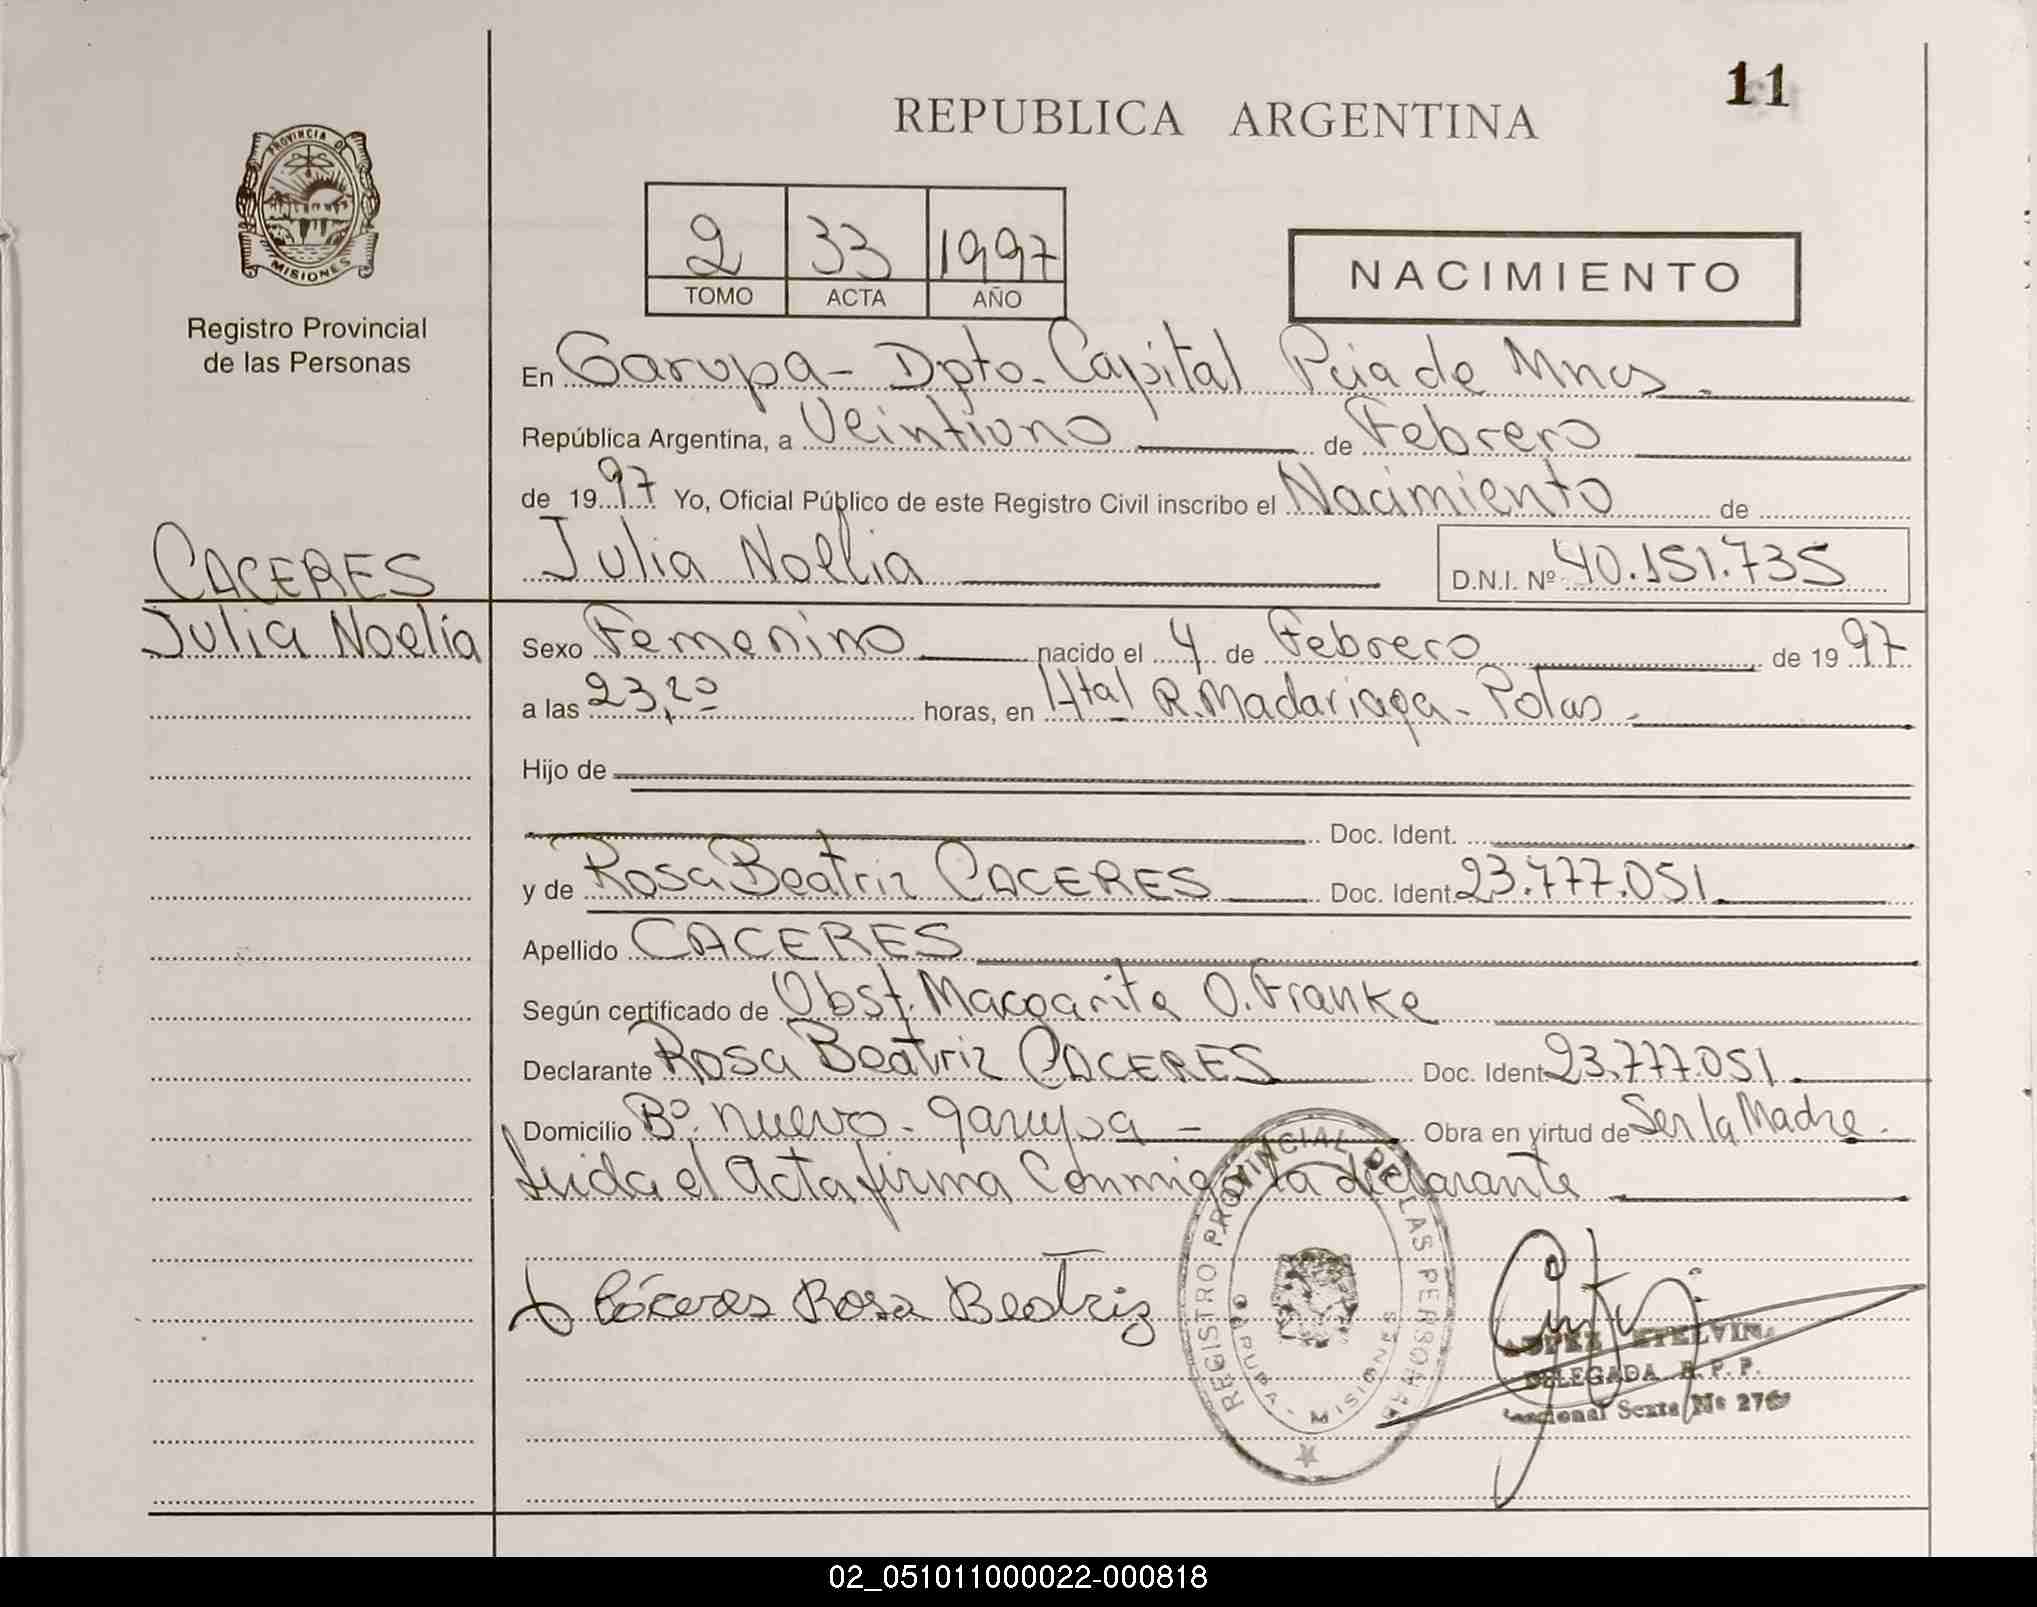 11
REPUBLICA ARGENTINA
PROVINCIA DE
MISIONES
Registro Provincial
de las Personas
2 33 1997
TOMO ACTA AÑO
NACIMIENTO
En Garupa - Dpto. Capital Pcia de Mnes.
República Argentina, a Veintiuno de Febrero
de 1997 Yo, Oficial Público de este Registro Civil inscribo el Nacimiento de
Julia Noelia D.N.I. Nº 40.151.735
CACERES
Julia Noelia
Sexo Femenino nacido el 4 de Febrero de 1997
a las 23,20 horas, en Htal R. Madariaga - Pdas.
Hijo de
Doc. Ident.
y de Rosa Beatriz CACERES Doc. Ident. 23.777.051
Apellido CACERES
Según certificado de Obst. Margarita O. Franke
Declarante Rosa Beatriz CACERES Doc. Ident. 23.777.051
Domicilio Bº. Nuevo - Garupa - Obra en virtud de Ser la Madre.
Leida el Acta firma Conmigo la declarante
Cáceres Rosa Beatriz
REGISTRO PROVINCIAL DE LAS PERSONAS
GARUPA - MISIONES
LOPEZ ETELVINA
DELEGADA R.P.P.
Seccional Sexta Nº
02_051011000022-000818